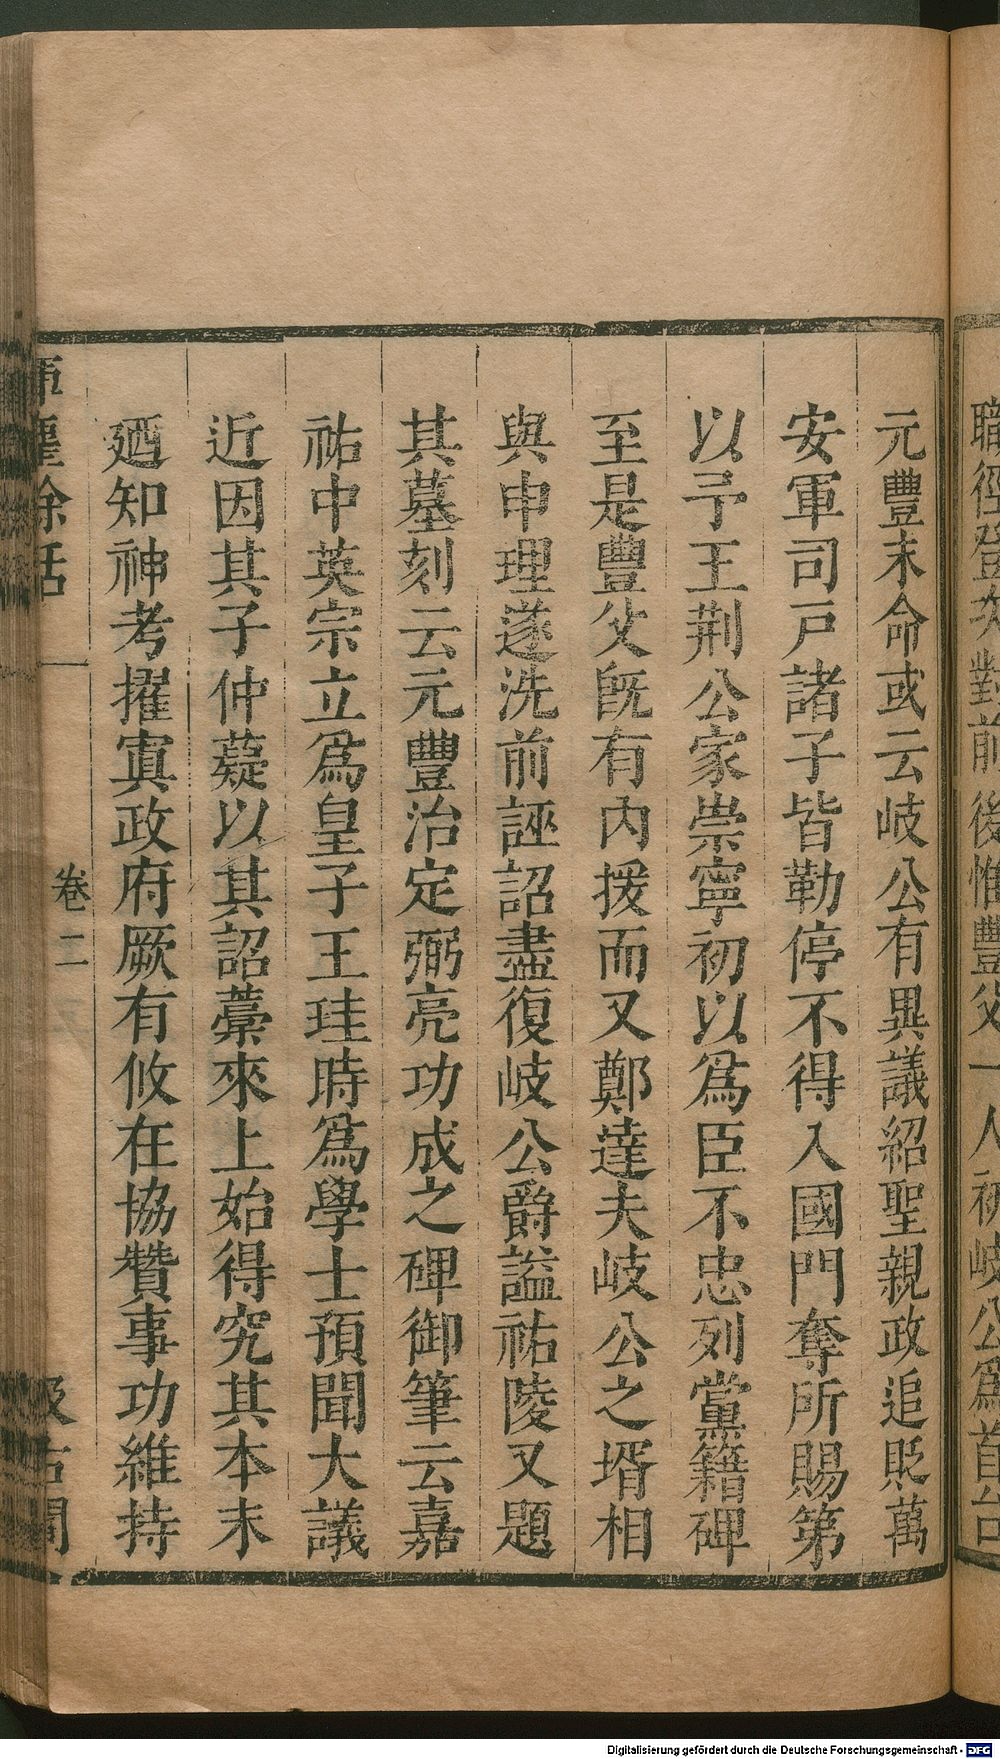 職徑登次對前後惟豐父一人初岐公爲首台
元豐末命或云岐公有異議紹聖親政追貶萬
安軍司戸諸子皆勒停不得入國門奪所賜第
以予王荆公家崇寧初以爲臣不忠列黨籍碑
至是豐父旣有内援而又鄭達夫岐公之壻相
與申理遂洗前誣詔盡復岐公爵謚祐陵又題
其墓刻云元豐治定弼亮功成之碑御筆云嘉
祐中英宗立爲皇子王珪時爲學士預聞大議
近因其子仲薿以其詔藁來上始得究其本末
廼知神考擢寘政府厥有攸在協贊事功維持
揮麈餘話
卷二
汲古閣
Digitalisierung gefördert durch die Deutsche Forschungsgemeinschaft - DFG